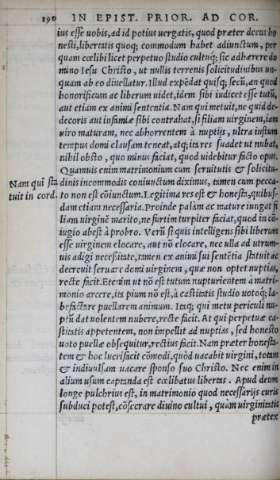 190 IN EPIST. PRIOR. AD COR.
ius esse uobis, ad id potius uergatis, quod præter decus ho
nesti, libertatis quoq; commodum habet adiunctum, per
quam cœlibi licet perpetuo studio cultuq; sic adhærere do
mino Iesu Christo, ut nullis terrenis solicitudinibus un-
quam ab eo diuellatur. Illud expēdat quisq; secū, an quod
honorificum ac liberum uidet, idem sibi iudicet esse tutū,
aut etiam ex animi sententia. Nam qui metuit, ne quid de-
decoris aut infamiæ sibi contrahat, si filiam uirginem, iam
uiro maturam, nec abhorrentem à nuptijs, ultra iustum
tempus domi clausam teneat, atq; ita res suadet ut nubat,
nihil obsto, quo minus faciat, quod uidebitur facto opus.
Quamuis enim matrimonium cum seruitutis & solicitu-
Nam qui sta dinis incommodis coniunctum diximus, tamen cum pecca
tuit in cord. to non est cōiunctum. Legitima res est & honesta, quibus-
dam etiam necessaria. Proinde palàm ac mature iungat fi
liam uirginē marito, ne furtim turpiter faciat, quod in cō-
iugio abest à probro. Verū si quis intelligens sibi liberum
esse uirginem elocare, aut nō elocare, nec ulla ad utrum-
uis adigi necessitate, tamen ex animi sui sentētia statuit ac
decreuit seruare domi uirginem, quæ non optet nuptias,
recte facit. Etenim ut nō est tutum nupturientem à matri-
monio arcere, ita pium nō est, à castitatis studio uotoq; la-
befactare puellarem animum. Itaq; qui metu periculi nu-
ptū dat uolentem nubere, recte facit. At qui perpetuæ ca-
stitatis appetentem, non impellit ad nuptias, sed honesto
uoto puellæ obsequitur, rectius facit. Nam præter honesta-
tem & hoc lucrifacit cōmodi, quòd uacabit uirgini, totam
& indiuulsam uacare sponso suo Christo. Nec enim in
alium usum captanda est cœlibatus libertas. Apud deum
longe pulchrius est, in matrimonio quod necessarijs curis
subduci potest, cōsecrare diuino cultui, quàm uirginitatis
prætex